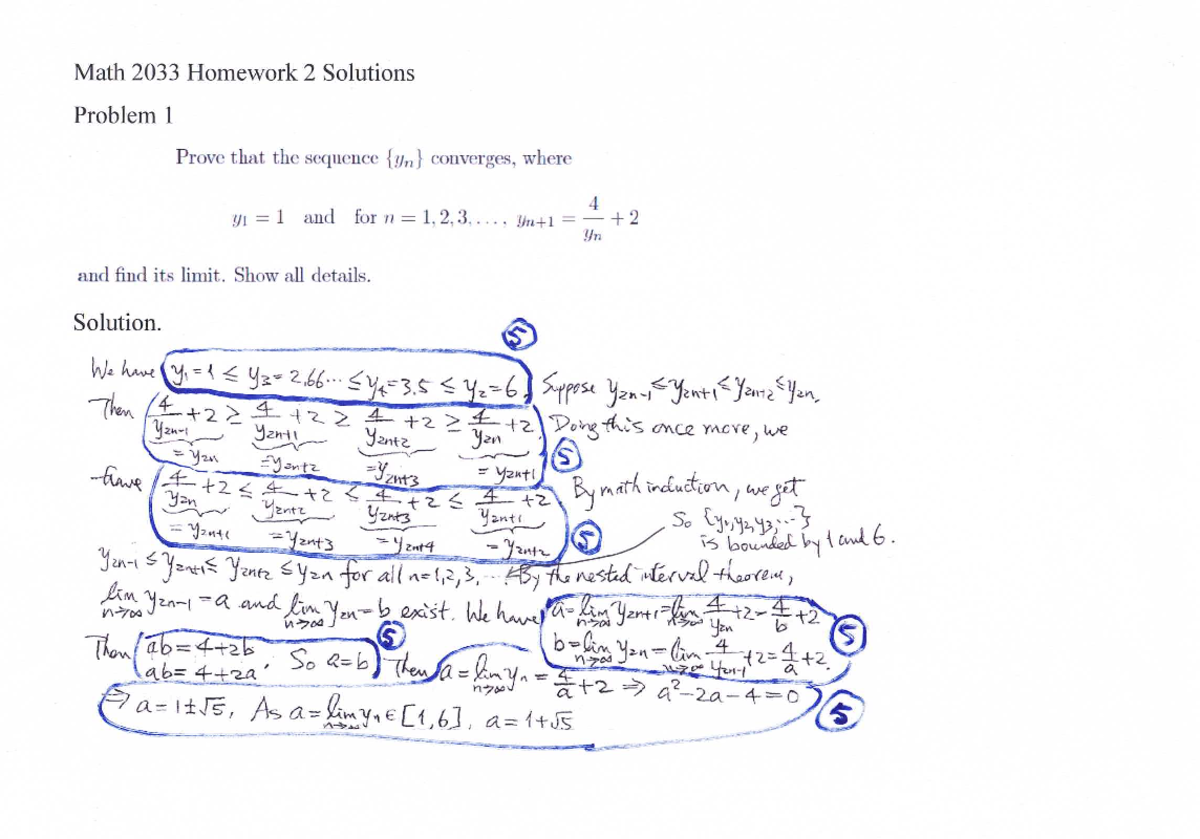 Math 2033 Homework 2 Solutions
Problem 1
Prove that the sequence {yn} converges, where
y1 = 1 and for n = 1, 2, 3, . . . , yn+1 = 4/yn + 2
and find its limit. Show all details.
Solution.
⑤
We have y1 = 1 ≤ y3 = 2.66··· ≤ y4 = 3.5 ≤ y2 = 6. Suppose y2n-1 ≤ y2n+1 ≤ y2n+2 ≤ y2n.
Then 4/y2n-1 + 2 ≥ 4/y2n+1 + 2 ≥ 4/y2n+2 + 2 ≥ 4/y2n + 2. Doing this once more, we
= y2n = y2n+2 = y2n+3 = y2n+1 ⑤
have 4/y2n + 2 ≤ 4/y2n+2 + 2 ≤ 4/y2n+3 + 2 ≤ 4/y2n+1 + 2. By math induction, we get
= y2n+1 = y2n+3 = y2n+4 = y2n+2 ⑤
So {y1, y2, y3, ···}
is bounded by 1 and 6.
y2n-1 ≤ y2n+1 ≤ y2n+2 ≤ y2n for all n=1,2,3, ··· By the nested interval theorem,
lim n→∞ y2n-1 = a and lim n→∞ y2n = b exist. We have a = lim n→∞ y2n+1 = lim n→∞ 4/y2n + 2 = 4/b + 2
b = lim n→∞ y2n = lim n→∞ 4/y2n-1 + 2 = 4/a + 2. ⑤
Then ab = 4+2b
ab = 4+2a. So a=b ⑤ Then a = lim n→∞ yn = 4/a + 2 ⇒ a²-2a-4=0
⇒ a = 1±√5. As a = lim n→∞ yn ∈ [1,6], a = 1+√5 ⑤